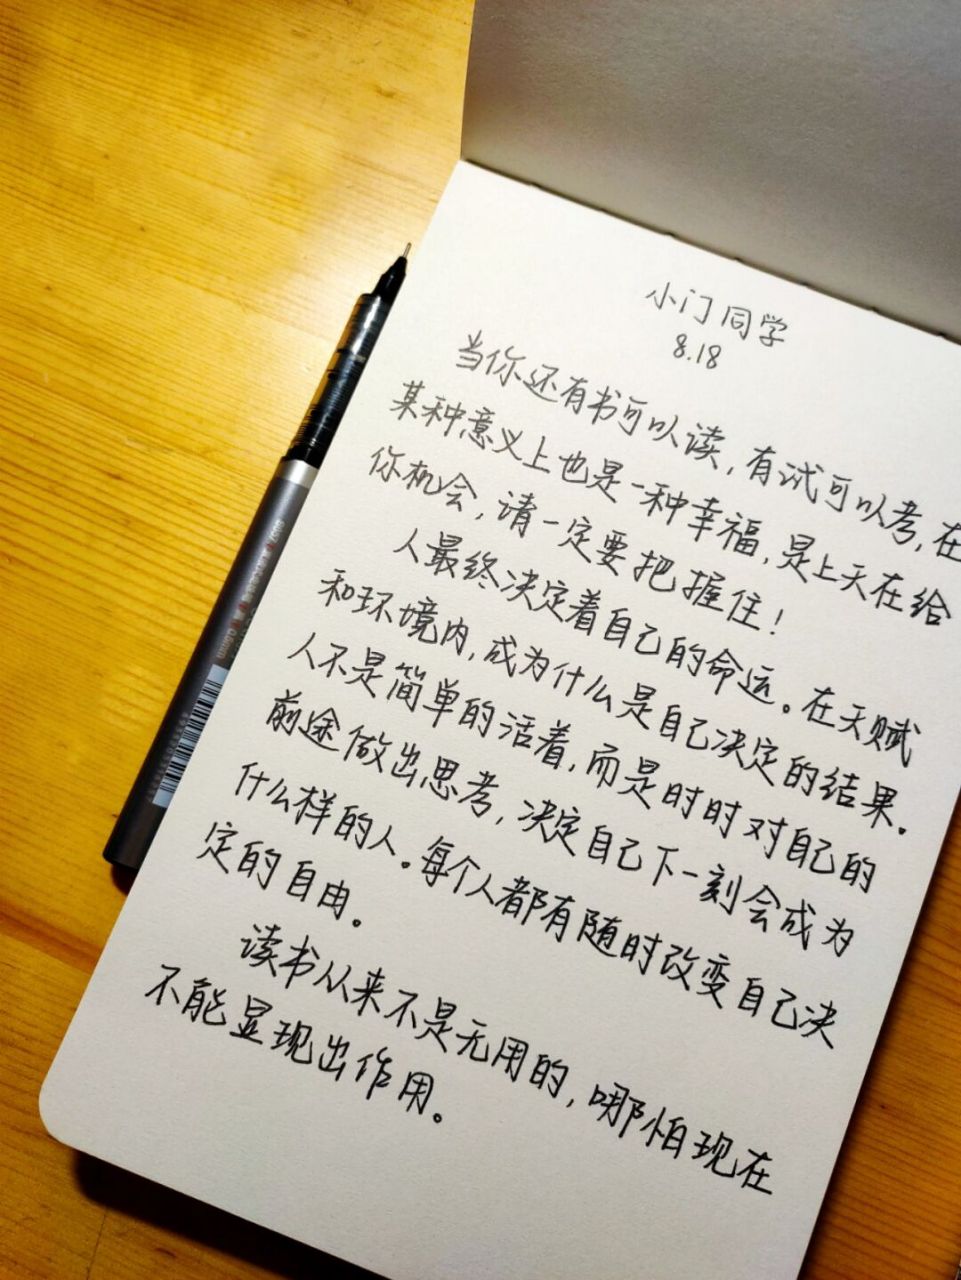 小门同学
8.18
当你还有书可以读，有试可以考，在
某种意义上也是一种幸福，是上天在给
你机会，请一定要把握住！
人最终决定着自己的命运。在天赋
和环境内，成为什么是自己决定的结果。
人不是简单的活着，而是时时对自己的
前途做出思考，决定自己下一刻会成为
什么样的人。每个人都有随时改变自己决
定的自由。
读书从来不是无用的，哪怕现在
不能显现出作用。
0.5mm